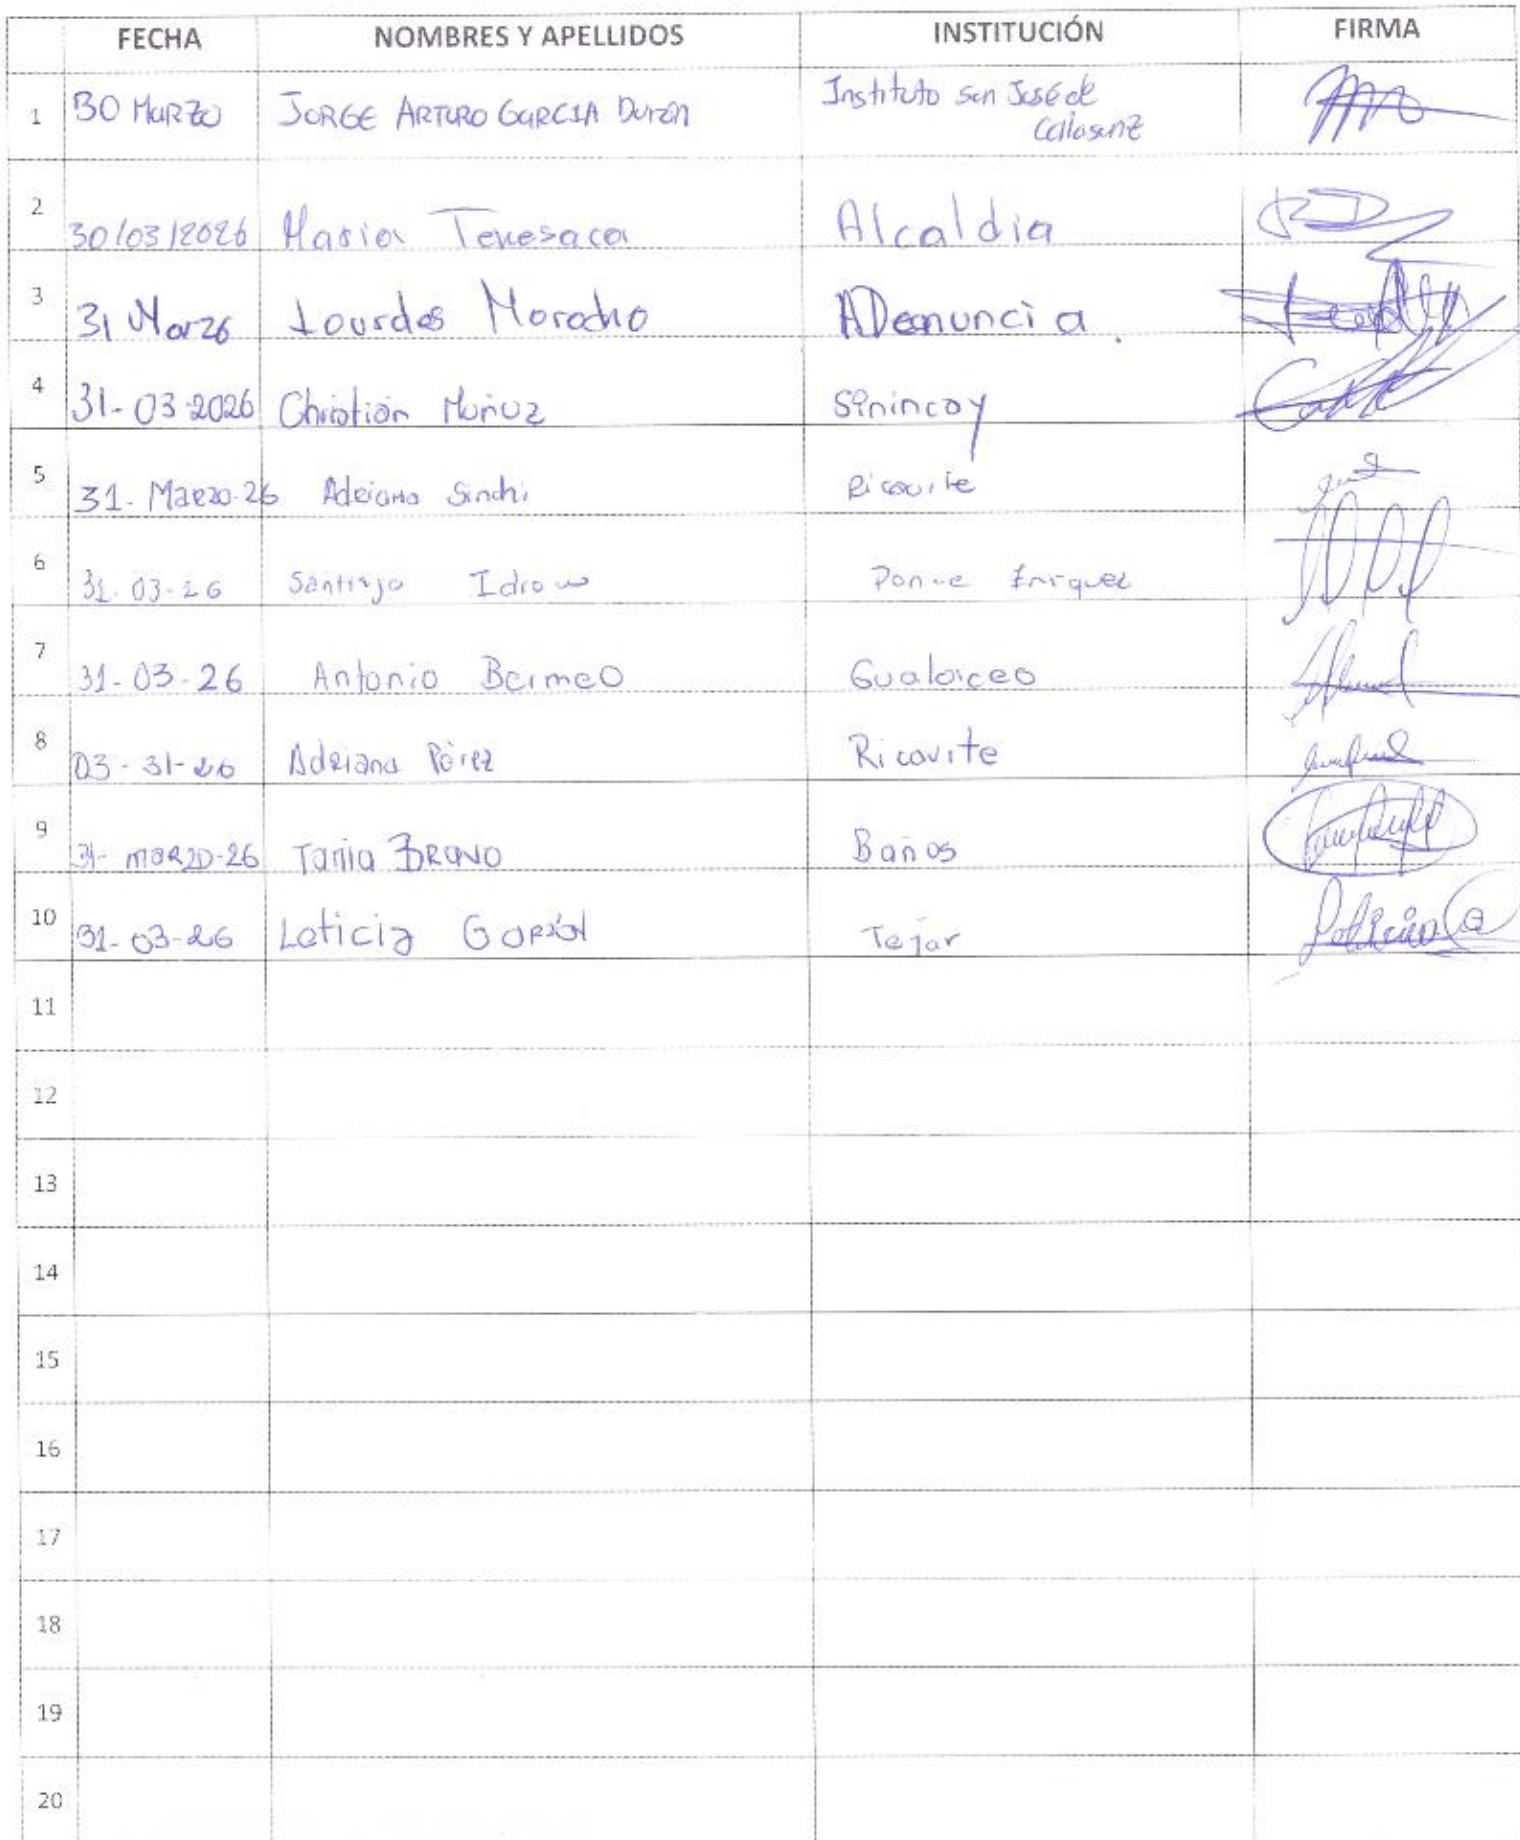 FECHA NOMBRES Y APELLIDOS INSTITUCIÓN FIRMA
1 30 Marzo JORGE ARTURO GARCIA Durán Instituto San José de
Calasanz
2 30/03/2026 Maria Tenesaca Alcaldia
3 31 Mar26 Lourdes Morocho ADenuncia.
4 31-03-2026 Christian Muñoz Sinincay
5 31-Marzo-26 Adriana Sinchi Ricaurte
6 31-03-26 Santiago Ponce Enriquez
7 31-03-26 Antonio Bermeo Gualaceo
8 03-31-26 Adriana Pérez Ricaurte
9 31-marzo-26 Tania BRAVO Baños
10 31-03-26 Leticia Tejar
11
12
13
14
15
16
17
18
19
20